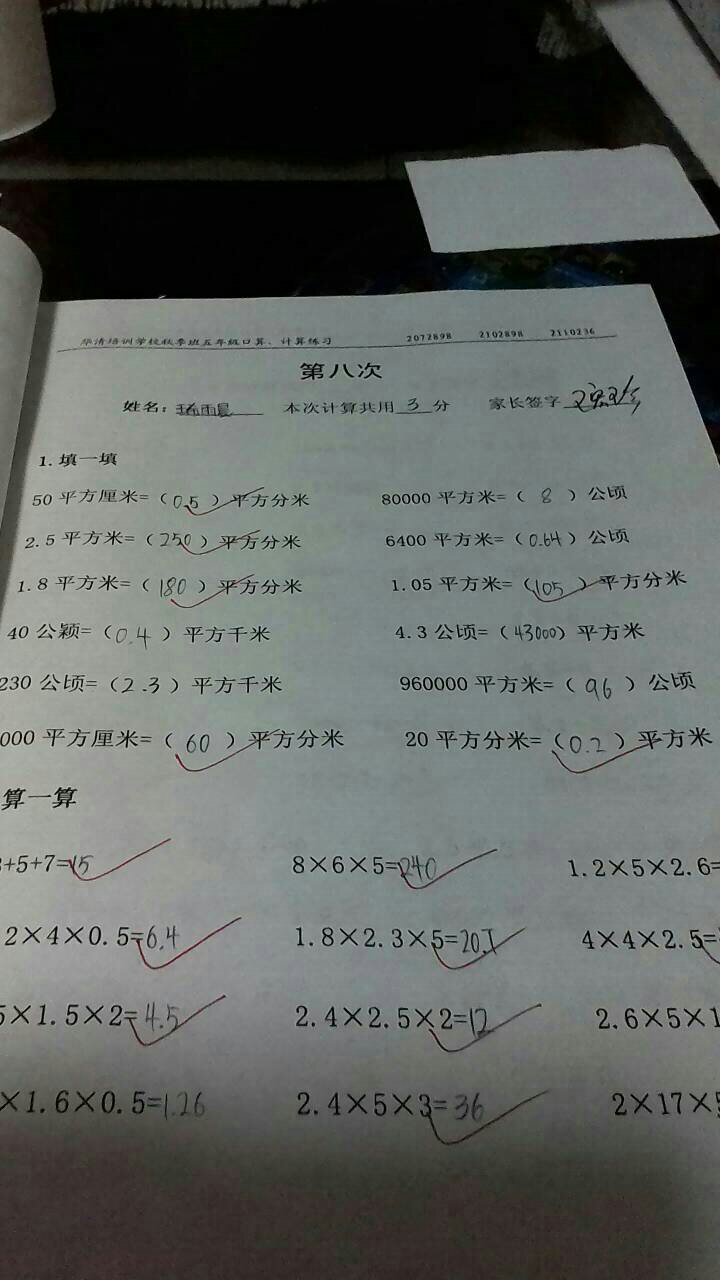 华清培训学校秋季班五年级口算、计算练习 2072898 2102898 2110236
第八次
姓名： 本次计算共用 3 分 家长签字
1.填一填
50平方厘米=（0.5）平方分米 80000平方米=（8）公顷
2.5平方米=（250）平方分米 6400平方米=（0.64）公顷
1.8平方米=（180）平方分米 1.05平方米=（105）平方分米
40公颖=（0.4）平方千米 4.3公顷=（43000）平方米
230公顷=（2.3）平方千米 960000平方米=（96）公顷
000平方厘米=（60）平方分米 20平方分米=（0.2）平方米
算一算
+5+7=15 8×6×5=240 1.2×5×2.6=
2×4×0.5=6.4 1.8×2.3×5=20.7 4×4×2.5=
5×1.5×2=4.5 2.4×2.5×2=12 2.6×5×1
×1.6×0.5=1.26 2.4×5×3=36 2×17×5